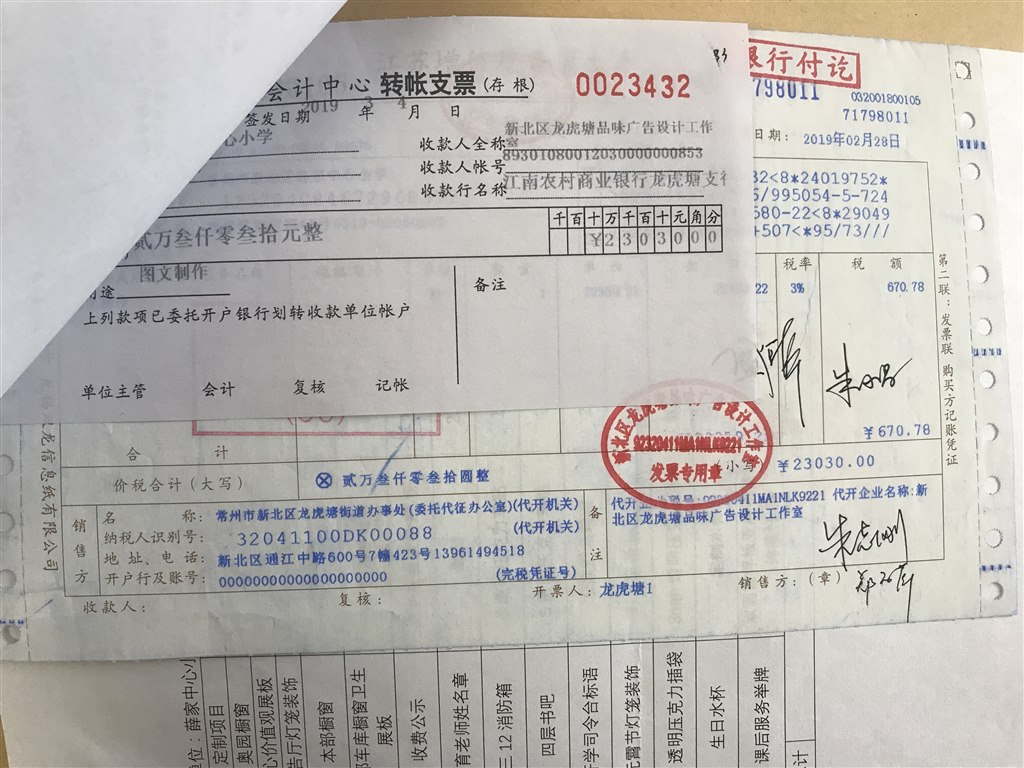 会计中心 转帐支票(存根) 0023432
签发日期 2019 年 3 月 4 日
心小学
收款人全称 新北区龙虎塘品味广告设计工作室
收款人帐号 89301080012030000000853
收款行名称 江南农村商业银行龙虎塘支行
贰万叁仟零叁拾元整
千百十万千百十元角分
¥2303000
图文制作
用途
备注
上列款项已委托开户银行划转收款单位帐户
单位主管 会计 复核 记帐
银行付讫
798011
032001800105
71798011
日期: 2019年02月28日
32<8*24019752*
5/995054-5-724
580-22<8*29049
+507<*95/73///
税率 税 额
22 3% 670.78
¥670.78
第二联:发票联 购买方记账凭证
龙信息纸有限公司
合 计
价税合计(大写) ⊗ 贰万叁仟零叁拾圆整 小写 ¥23030.00
新北区龙虎塘品味广告设计工作室
92320411MA1NLK9221
发票专用章
销售方
名 称: 常州市新北区龙虎塘街道办事处(委托代征办公室)(代开机关)
纳税人识别号: 32041100DK00088 (代开机关)
地址、电话: 新北区通江中路600号7幢423号13961494518
开户行及账号: 0000000000000000000000 (完税凭证号)
备注
代开企业税号:92320411MA1NLK9221 代开企业名称:新
北区龙虎塘品味广告设计工作室
收款人: 复核: 开票人: 龙虎塘1 销售方:(章)
单位:薛家中心小
定制项目
奥园橱窗
心价值观展板
告厅灯笼装饰
本部橱窗
部车库橱窗卫生
展板
收费公示
育老师姓名章
三12消防箱
四层书吧
开学司令台标语
元宵节灯笼装饰
透明压克力插袋
生日水杯
课后服务举牌
计